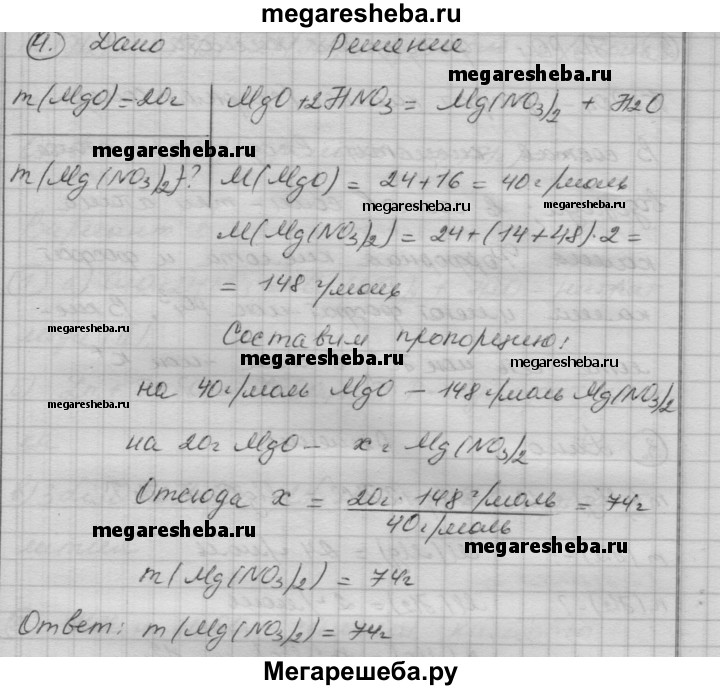 megaresheba.ru
4. Дано Решение
megaresheba.ru
m(MgO)=20г MgO+2HNO3 = Mg(NO3)2 + H2O
megaresheba.ru
m(Mg(NO3)2)-? M(MgO) = 24+16 = 40г/моль
megaresheba.ru megaresheba.ru
M(Mg(NO3)2) = 24+(14+48)·2 =
= 148 г/моль
megaresheba.ru Составим пропорцию:
megaresheba.ru megaresheba.ru
на 40г/моль MgO – 148г/моль Mg(NO3)2
megaresheba.ru
на 20г MgO – x г Mg(NO3)2
Отсюда x = 20г · 148г/моль / 40г/моль = 74г
megaresheba.ru megaresheba.ru
m(Mg(NO3)2) = 74г
Ответ: m(Mg(NO3)2) = 74г
Мегарешеба.ру